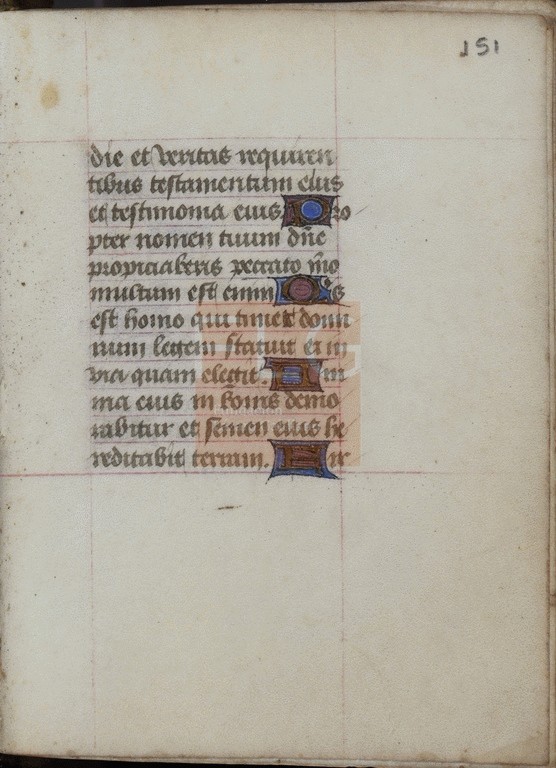 151
die et veritas requiren
tibus testamentum eius
et testimonia eius Pro
pter nomen tuum dñe
propiciaberis peccato mõ
multum est enim Quis
est homo qui timet domi
num legem statuit ei in
via quam elegit. Ani
ma eius in bonis demo
rabitur et semen eius he
reditabit terram. Fir